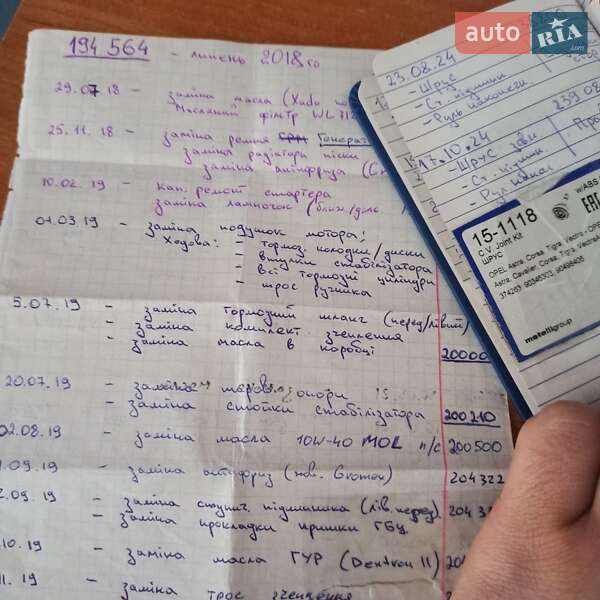 194 564 - липень 2018го
29.07.18 - заміна масла (Хадо
Масляний фільтр WL 71
25.11.18 - заміна ременя ГРМ Генерат
заміна радіатора пічки
заміна антифриза
10.02.19 - кап. ремонт стартера
заміна лампочок (ближ./даль
01.03.19 - заміна подушок мотора!
Ходова: - тормоз. колодки/диски
- втулки стабілізатора
- всі тормозні циліндри
- трос ручника
5.07.19 - заміна тормозний шланг (перед/лівий)
- заміна комплект зчеплення
- заміна масла в коробці 20000
20.07.19 - заміна шаров. опори
- заміна стойки стабілізатора 200 210
02.08.19 - заміна масла 10W-40 MOL п/с 200 500
.09.19 - заміна антифриз (жов. Gromex) 204 322
2.09.19 - заміна ступич. підшипника (лів. перед). 204 3
- заміна прокладки кришки ГБЦ
.10.19 - заміна масла ГУР (Dextron II) 20
1.19 - заміна трос зчеплення
auto RIA .com
23.08.24
- Шрус
- Ст. підшип
- Руль наконечн
239 08
17.10.24 Про
- Шрус
- Ст. підшип
- Рул након
15-1118
C.V. Joint Kit
ШРУС
OPEL Astra, Corsa, Tigra, Vectra
Astra, Cavalier, Corsa, Tigra, Vectra
374253, 90348303, 90496406
W/ABS
EAC
metelligroup